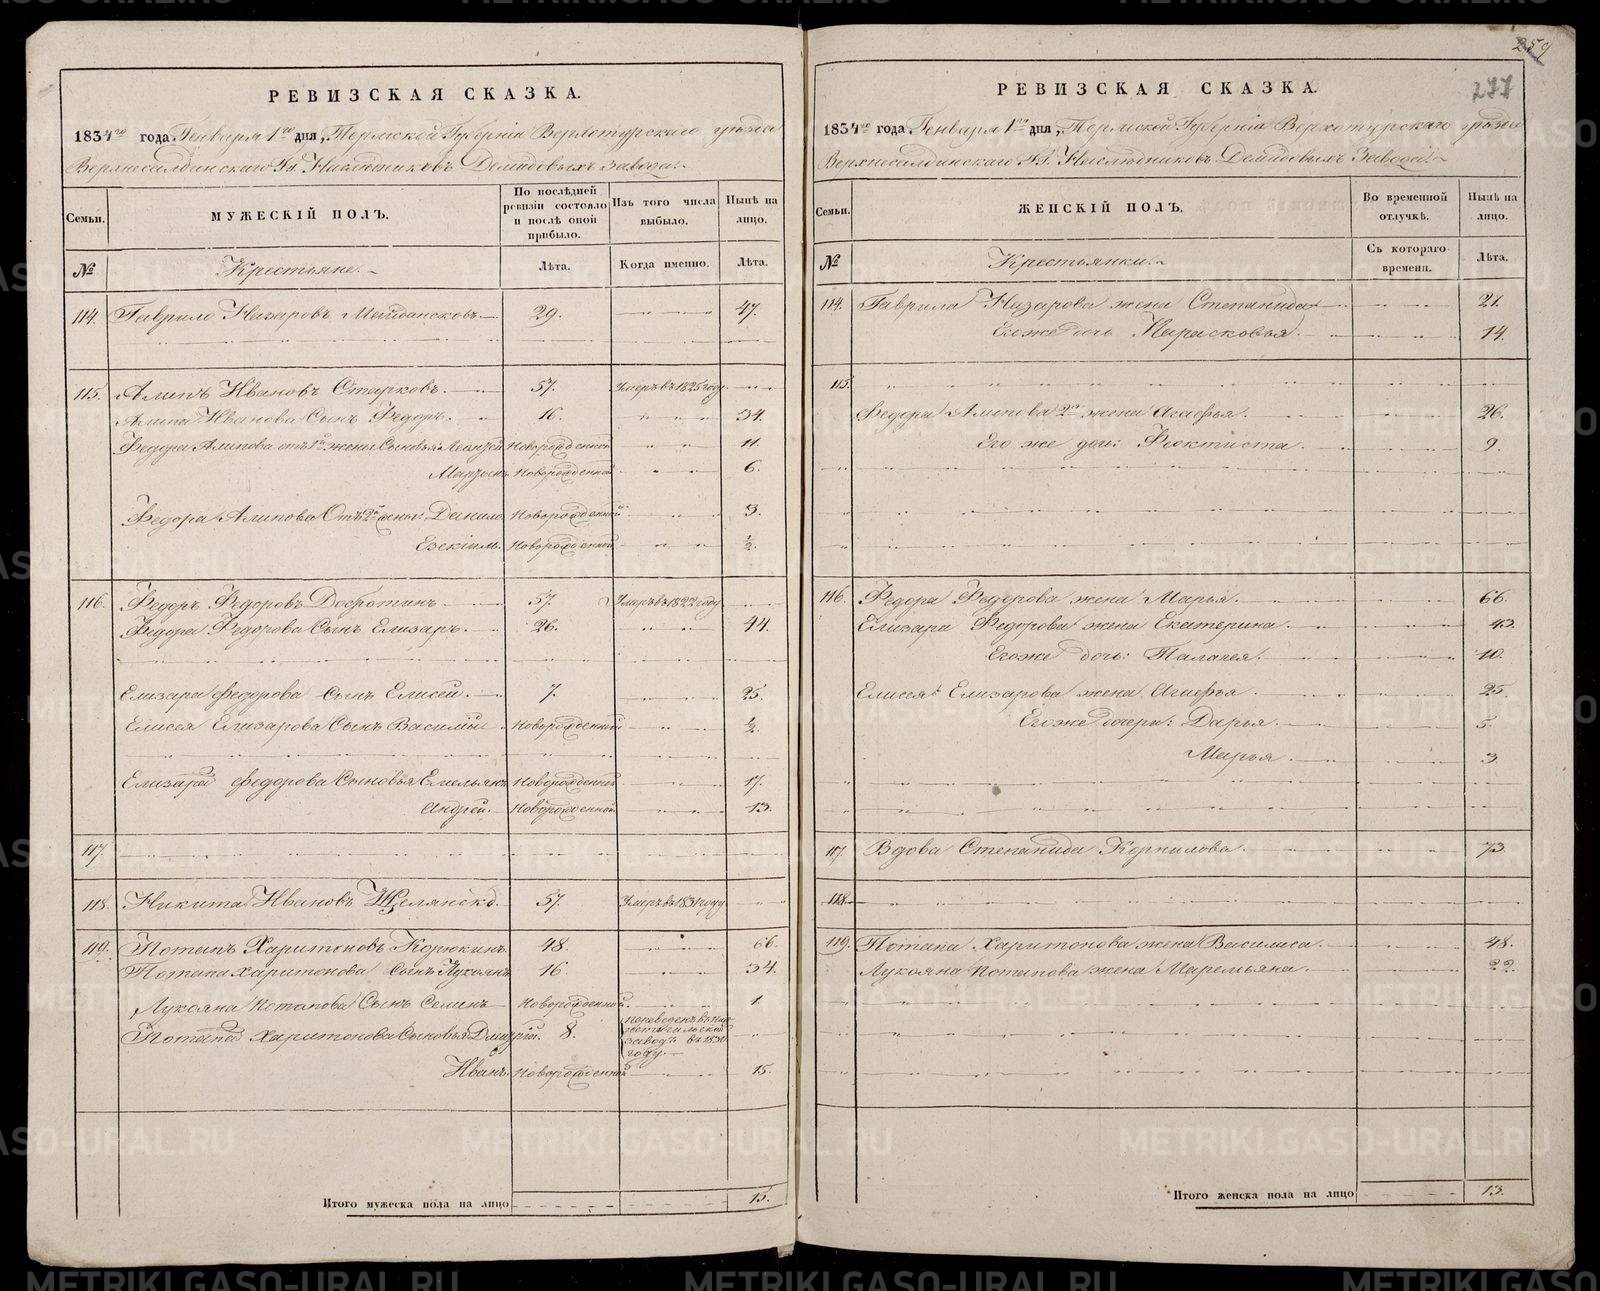 259
277
РЕВИЗСКАЯ СКАЗКА.
1834го года Генваря 1го дня, Пермской Губерніи Верхотурскаго уѣзда
Верхнесалдинскаго Гг. Наслѣдниковъ Демидовыхъ Завода.
Семьи.
МУЖЕСКІЙ ПОЛЪ.
По послѣдней ревизіи состояло и послѣ оной прибыло.
Изъ того числа выбыло.
Нынѣ на лицо.
№ Крестьяне. Лѣта. Когда именно. Лѣта.
114. Гаврило Назаровъ 29. 47.
115. Алипъ Ивановъ Старковъ. 57. Умеръ въ 1825 году
Алипа Иванова Сынъ Федоръ. 16. 34.
Федора Алипова отъ 1й жены Сыновья Новорожденной 11.
Новорожденной 6.
Федора Алипова Отъ 2й жены: Данило Новорожденной 3.
Езекіиль. Новорожденной ½.
116. Федоръ Федоровъ Добротинъ 57. Умеръ въ 1822 году
Федора Федорова Сынъ Елизаръ. 26. 44.
Елизара Федорова Сынъ Елисей. 7. 25.
Елисея Елизарова Сынъ Василій Новорожденной ½.
Елизара Федорова Сыновья Емельянъ Новорожденной 17.
Андрей. Новорожденной 13.
117.
118. Никита Ивановъ 57. Умеръ въ 1831 году
119. Потапъ Харитоновъ Корюкинъ 48. 66.
Потапа Харитонова Сынъ Лукоянъ 16. 34.
Лукояна Потапова Сынъ Семенъ Новорожденной 1.
Потапа Харитонова Сыновья Дмитрій. 8. переведенъ въ заводъ въ 1830 году.
Иванъ. Новорожденной 15.
Итого мужеска пола на лицо 15.
РЕВИЗСКАЯ СКАЗКА.
1834го года Генваря 1го дня, Пермской Губерніи Верхотурскаго уѣзда
Верхнесалдинскаго Гг. Наслѣдниковъ Демидовыхъ Завода.
Семьи.
ЖЕНСКІЙ ПОЛЪ.
Во временной отлучкѣ.
Нынѣ на лицо.
№ Крестьянки. Съ котораго времени. Лѣта.
114. Гаврила Назарова жена Степанида 21.
Его же дочь Парасковья. 14.
115.
Федора Алипова 2я жена Агафья. 26.
Его же дочь: Феоктиста 9.
116. Федора Федорова жена Марья. 66.
Елизара Федорова жена Екатерина. 43.
Его же дочь: Палагея. 10.
Елисея Елизарова жена Агафья. 25.
Его же дочери: Дарья. 5.
Марья. 3
117. Вдова Степанида Корнилова. 73.
118.
119. Потапа Харитонова жена Василиса. 48.
Лукояна Потапова жена Маремьяна. 22.
Итого женска пола на лицо 13.
METRIKI.GASO-URAL.RU